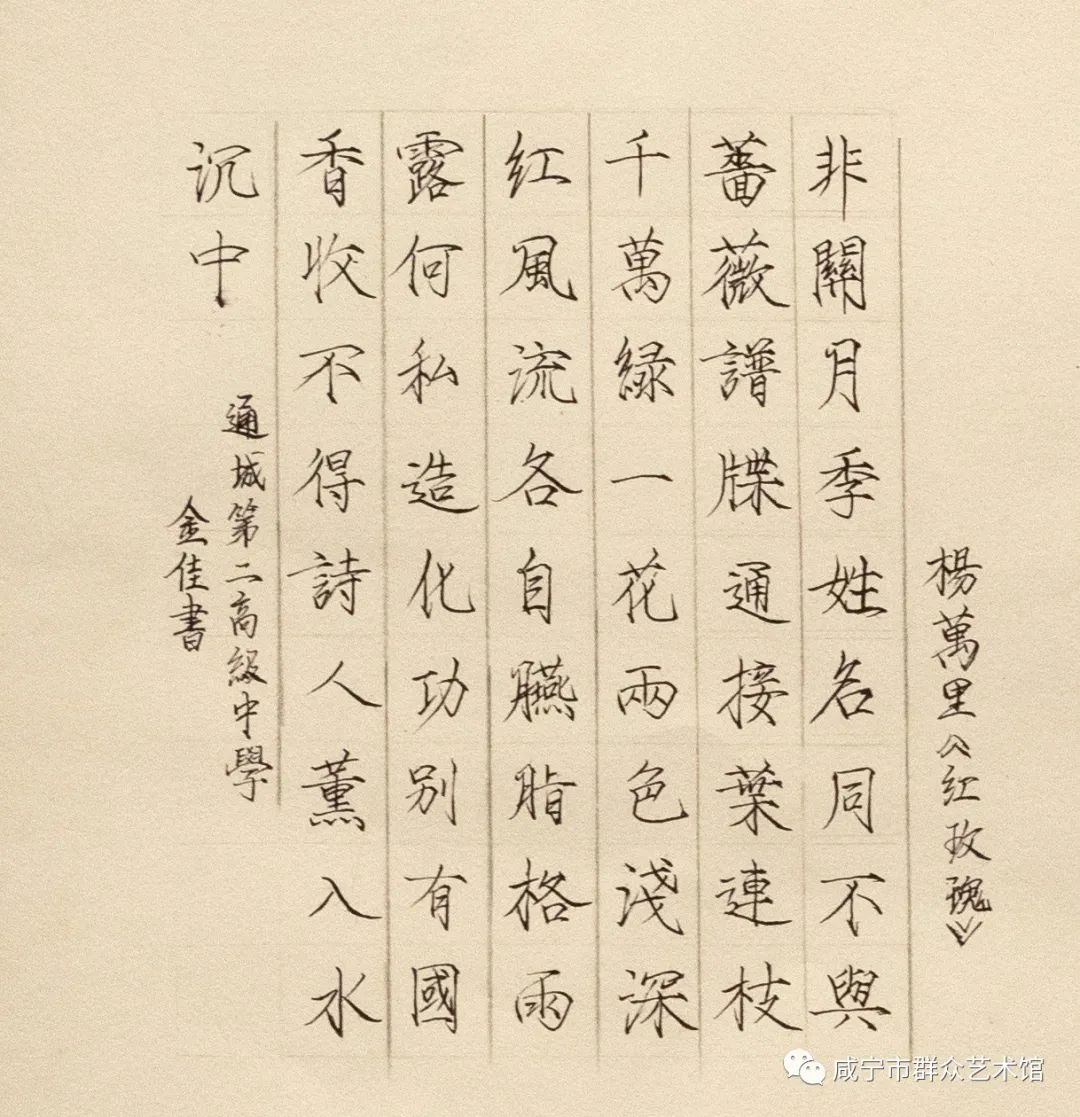 楊萬里《红玫瑰》
非關月季姓名同不與
薔薇譜牒通接葉連枝
千萬緑一花兩色淺深
红風流各自臙脂格雨
露何私造化功别有國
香收不得詩人薰入水
沉中
通城第二高級中學
金佳書
咸宁市群众艺术馆